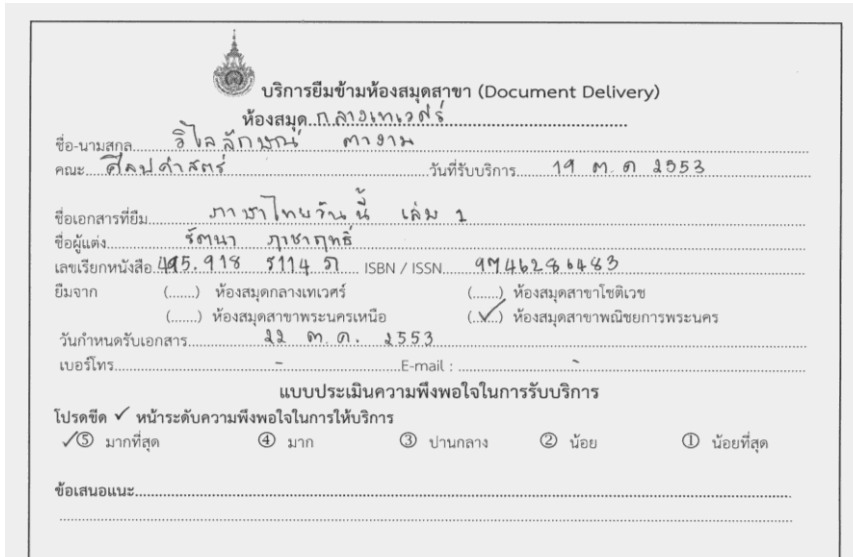 บริการยืมข้ามห้องสมุดสาขา (Document Delivery)
ห้องสมุด กลางเทเวศร์
ชื่อ-นามสกุล วิไลลักษณ์ ตางาม
คณะ ศิลปศาสตร์ วันที่รับบริการ 19 ต.ค 2553
ชื่อเอกสารที่ยืม ภาษาไทยวันนี้ เล่ม 1
ชื่อผู้แต่ง รัตนา ฦาชาฤทธิ์
เลขเรียกหนังสือ 495.918 ร114 ภ ISBN / ISSN 9746286483
ยืมจาก (.......) ห้องสมุดกลางเทเวศร์ (.......) ห้องสมุดสาขาโชติเวช
(.......) ห้องสมุดสาขาพระนครเหนือ (..✓..) ห้องสมุดสาขาพณิชยการพระนคร
วันกำหนดรับเอกสาร 22 ต.ค. 2553
เบอร์โทร - E-mail : -
แบบประเมินความพึงพอใจในการรับบริการ
โปรดขีด ✓ หน้าระดับความพึงพอใจในการให้บริการ
✓⑤ มากที่สุด ④ มาก ③ ปานกลาง ② น้อย ① น้อยที่สุด
ข้อเสนอแนะ